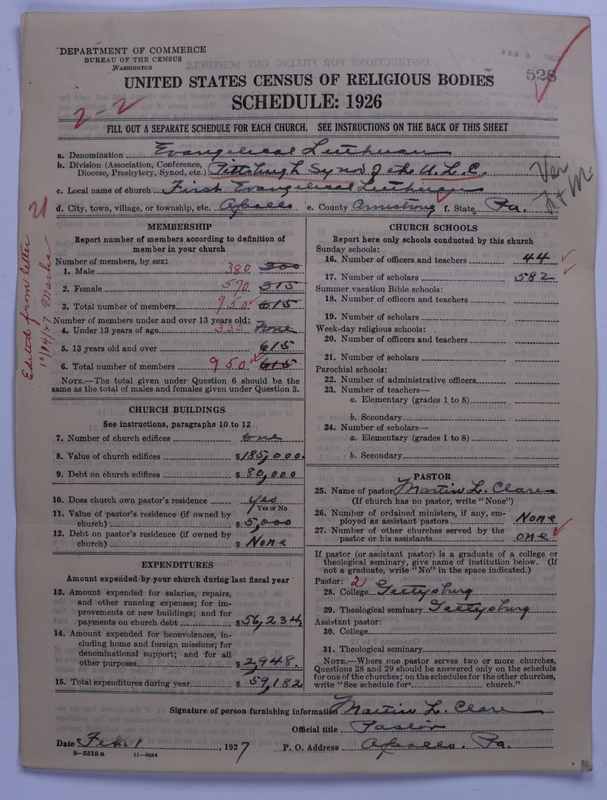 DEPARTMENT OF COMMERCE
BUREAU OF THE CENSUS
WASHINGTON
528
UNITED STATES CENSUS OF RELIGIOUS BODIES
SCHEDULE: 1926
2-2
FILL OUT A SEPARATE SCHEDULE FOR EACH CHURCH. SEE INSTRUCTIONS ON THE BACK OF THIS SHEET
a. Denomination Evangelical Lutheran
b. Division (Association, Conference, Diocese, Presbytery, Synod, etc.) Pittsburgh Synod of the U.L.C.
c. Local name of church First Evangelical Lutheran
d. City, town, village, or township, etc. Apollo e. County Armstrong f. State Pa.
Ver
Edited from letter
MEMBERSHIP
Report number of members according to definition of
member in your church
Number of members, by sex:
1. Male 380 300
2. Female 570 315
3. Total number of members 950 615
Number of members under and over 13 years old:
4. Under 13 years of age 335 None
5. 13 years old and over 615
6. Total number of members 950 615
NOTE.—The total given under Question 6 should be
same as the total of males and females given under Question 3.
CHURCH BUILDINGS
See instructions, paragraphs 10 to 12
7. Number of church edifices one
8. Value of church edifices $185,000
9. Debt on church edifices $80,000
10. Does church own pastor's residence Yes
Yes or No
11. Value of pastor's residence (if owned by
church) $5,000
12. Debt on pastor's residence (if owned by
church) $None
EXPENDITURES
Amount expended by your church during last fiscal year
13. Amount expended for salaries, repairs,
and other running expenses; for im-
provements or new buildings; and for
payments on church debt $56,234
14. Amount expended for benevolences, in-
cluding home and foreign missions; for
denominational support; and for all
other purposes $2,948.
15. Total expenditures during year $59,182
CHURCH SCHOOLS
Report here only schools conducted by this church
Sunday schools:
16. Number of officers and teachers 44
17. Number of scholars 582
Summer vacation Bible schools:
18. Number of officers and teachers
19. Number of scholars
Week-day religious schools:
20. Number of officers and teachers
21. Number of scholars
Parochial schools:
22. Number of administrative officers
23. Number of teachers—
a. Elementary (grades 1 to 8)
b. Secondary
24. Number of scholars—
a. Elementary (grades 1 to 8)
b. Secondary
PASTOR
25. Name of pastor Martin L. Clare
(If church has no pastor, write "None")
26. Number of ordained ministers, if any, em-
ployed as assistant pastors None
27. Number of other churches served by the
pastor or his assistants one
If pastor (or assistant pastor) is a graduate of a college or
theological seminary, give name of institution below. (If
not a graduate, write "No" in the space indicated.)
Pastor: 2
28. College Gettysburg
29. Theological seminary Gettysburg
Assistant pastor:
30. College
31. Theological seminary
NOTE.—Where one pastor serves two or more churches,
Questions 28 and 29 should be answered only on the schedule
for one of the churches; on the schedules for the other churches,
write "See schedule for church."
Signature of person furnishing information Martin L. Clare
Official title Pastor
Date Feb. 1 1927 P. O. Address Apollo, Pa.
8-5518 a 11-9054